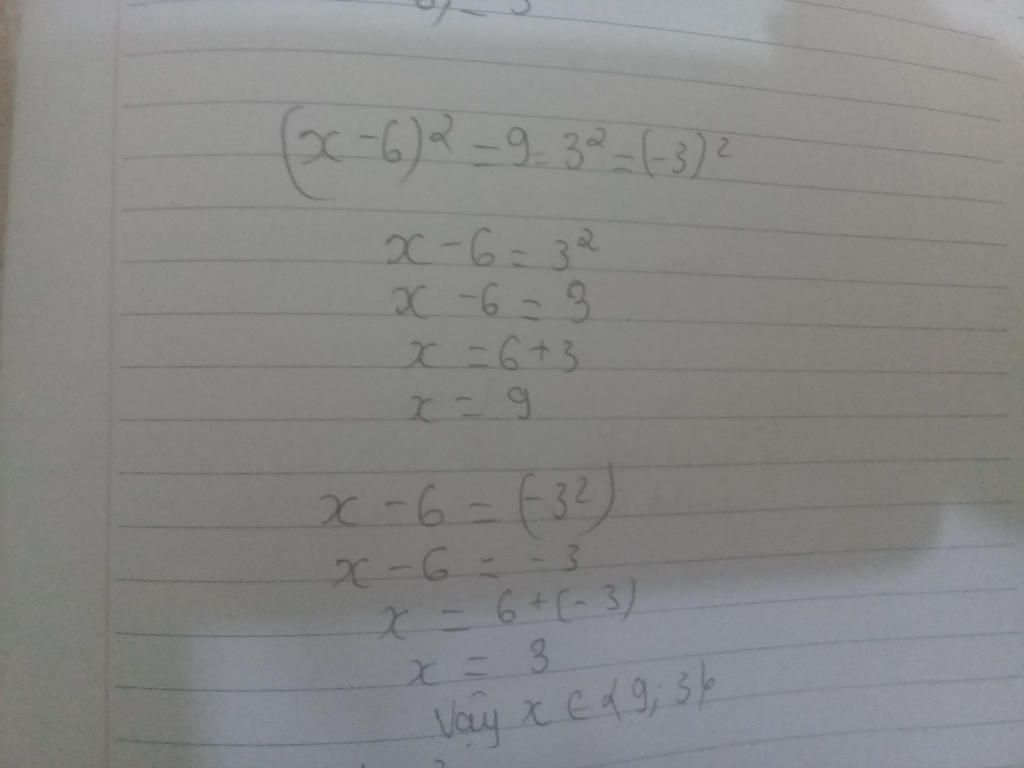 (x - 6)² = 9 = 3² = (-3)²
x - 6 = 3²
x - 6 = 3
x = 6 + 3
x = 9
x - 6 = (-3²)
x - 6 = -3
x = 6 + (-3)
x = 3
Vậy x ∈ {9; 3}